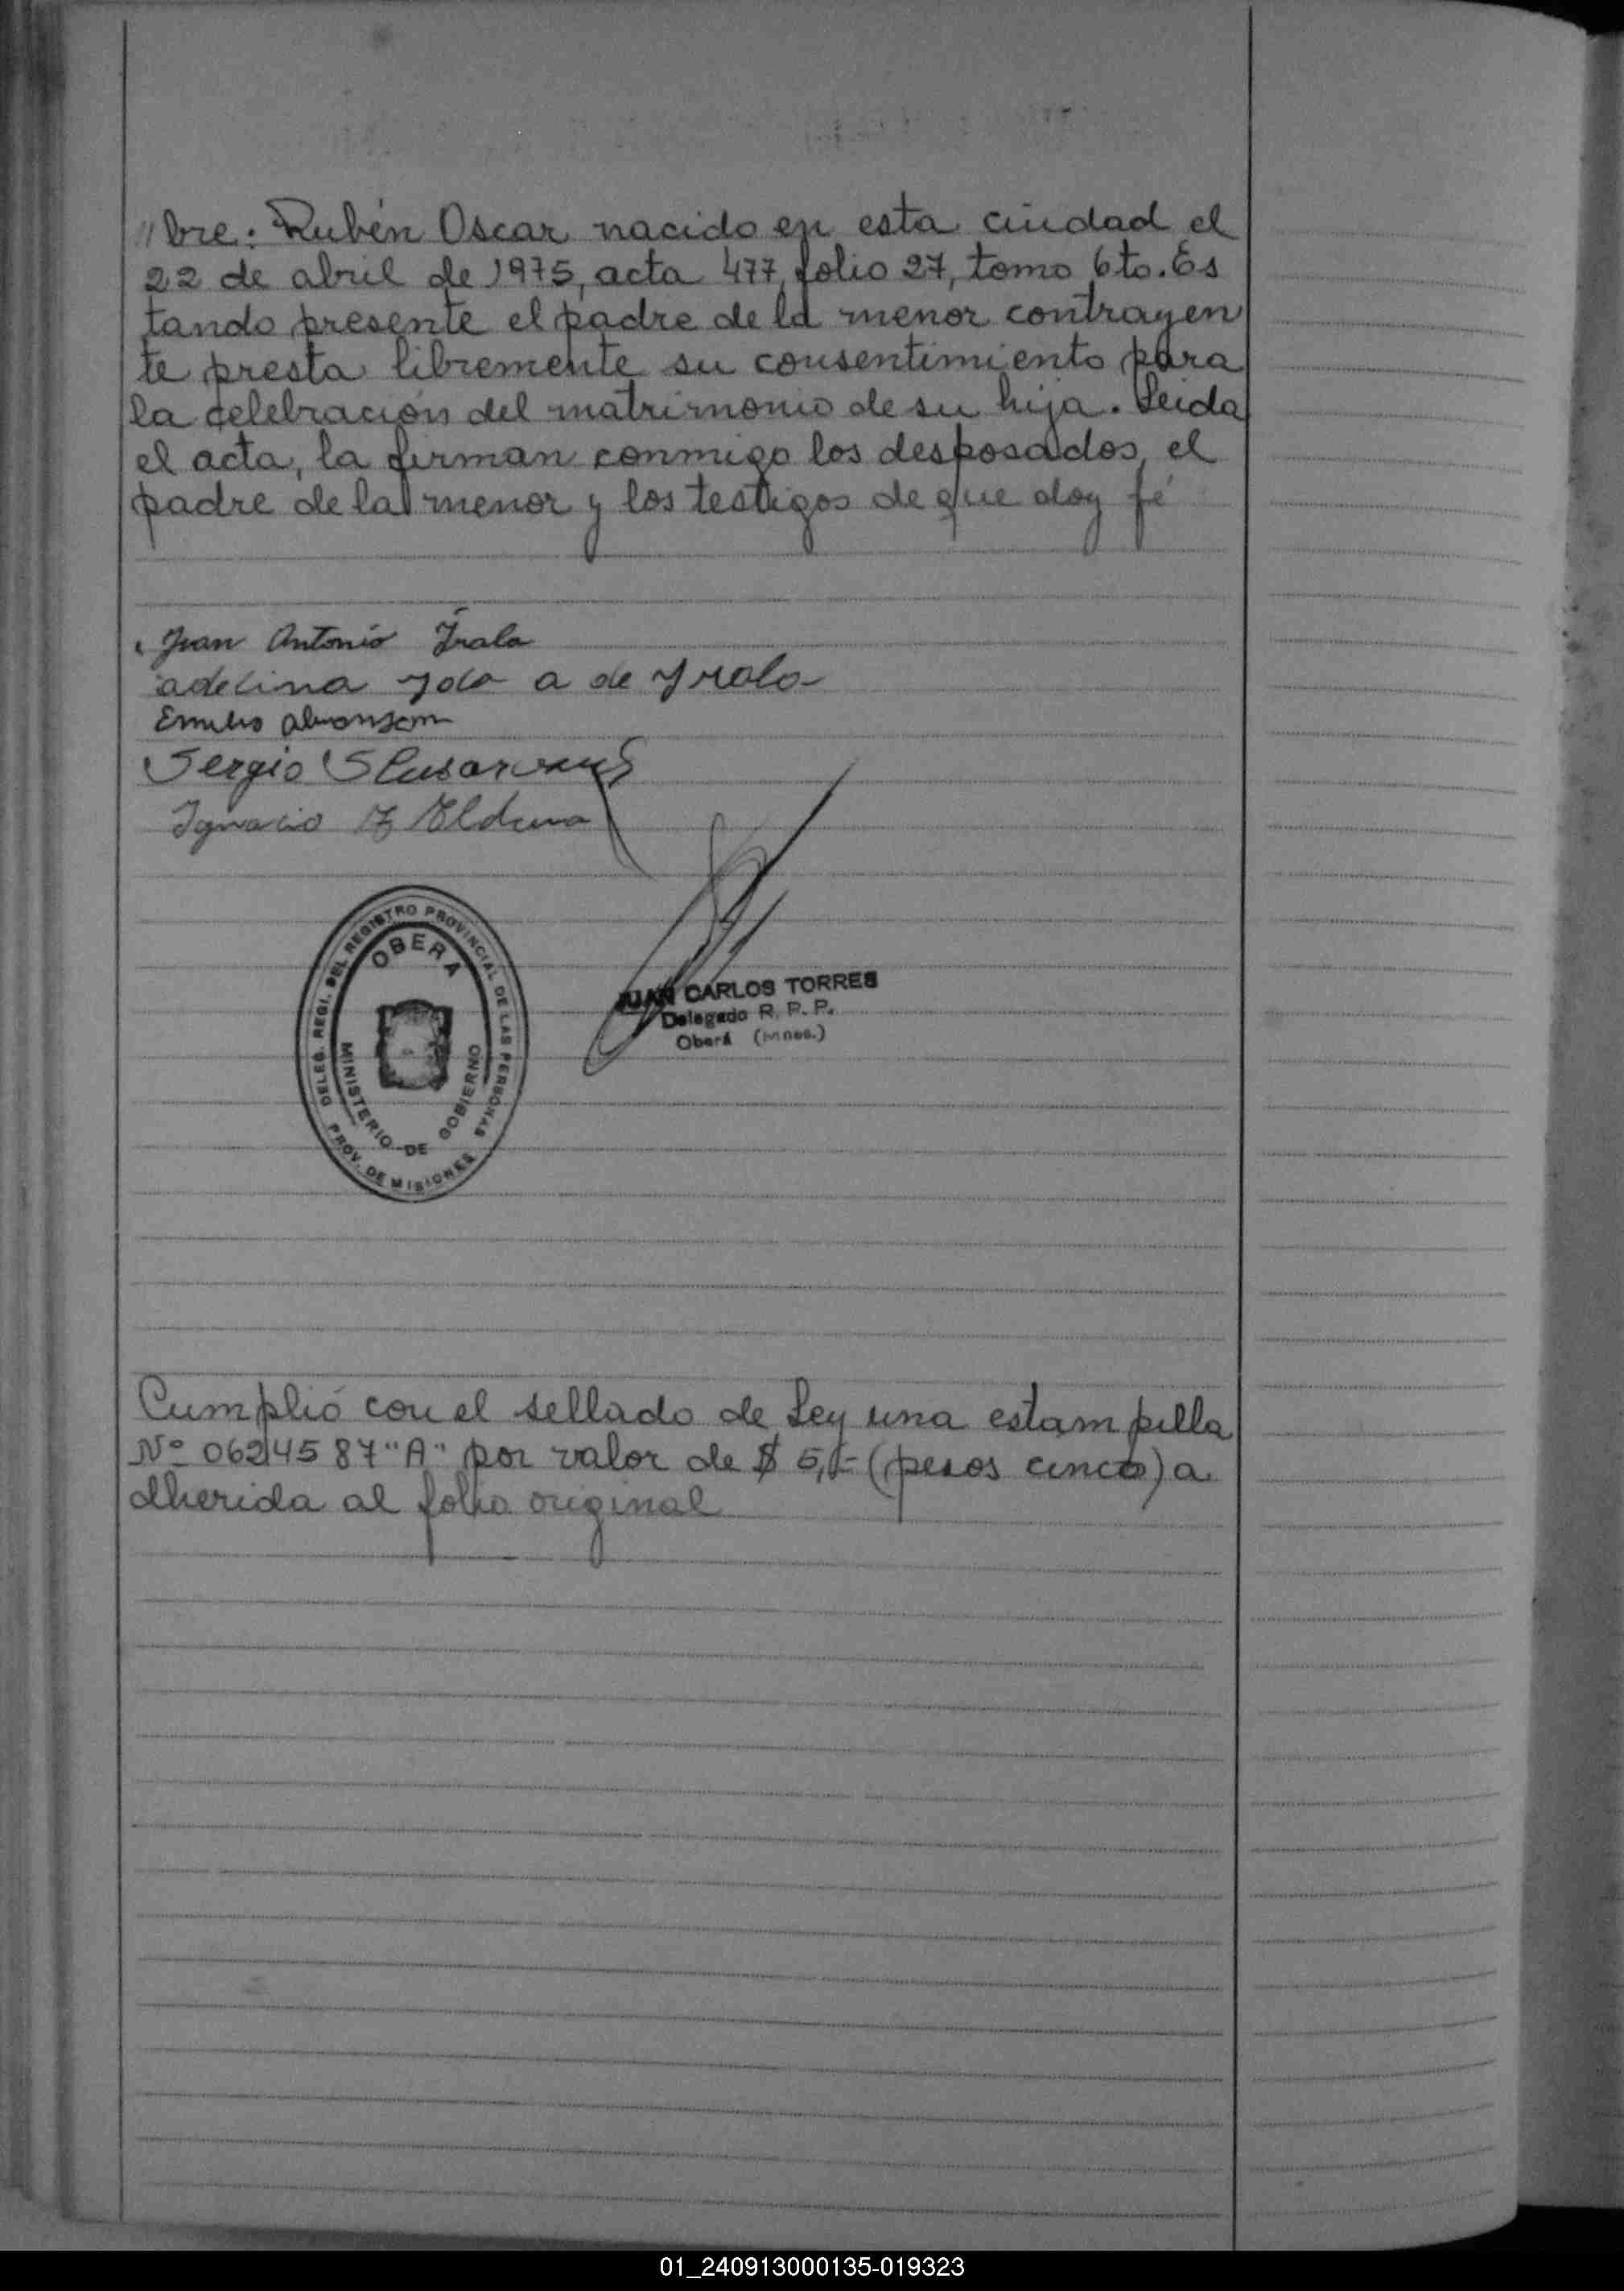 "bre: Rubén Oscar nacido en esta ciudad el
22 de abril de 1975, acta 477, folio 27, tomo 6to. Es
tando presente el padre de la menor contrayen
te presta libremente su consentimiento para
la celebración del matrimonio de su hija. Leida
el acta, la firman conmigo los desposados, el
padre de la menor y los testigos de que doy fé
Juan Antonio Irala
adelina a de Yrala
Emilio
Sergio
Ignacio
DELEG. REGI. DEL REGISTRO PROVINCIAL DE LAS PERSONAS
OBERA
MINISTERIO DE GOBIERNO
PROV. DE MISIONES
JUAN CARLOS TORRES
Delegado R. P. P.
Oberá (Mnes.)
Cumplió con el sellado de Ley una estampilla
Nº 0624587 "A" por valor de $ 5,- (pesos cinco) a
dherida al folio original
01_240913000135-019323